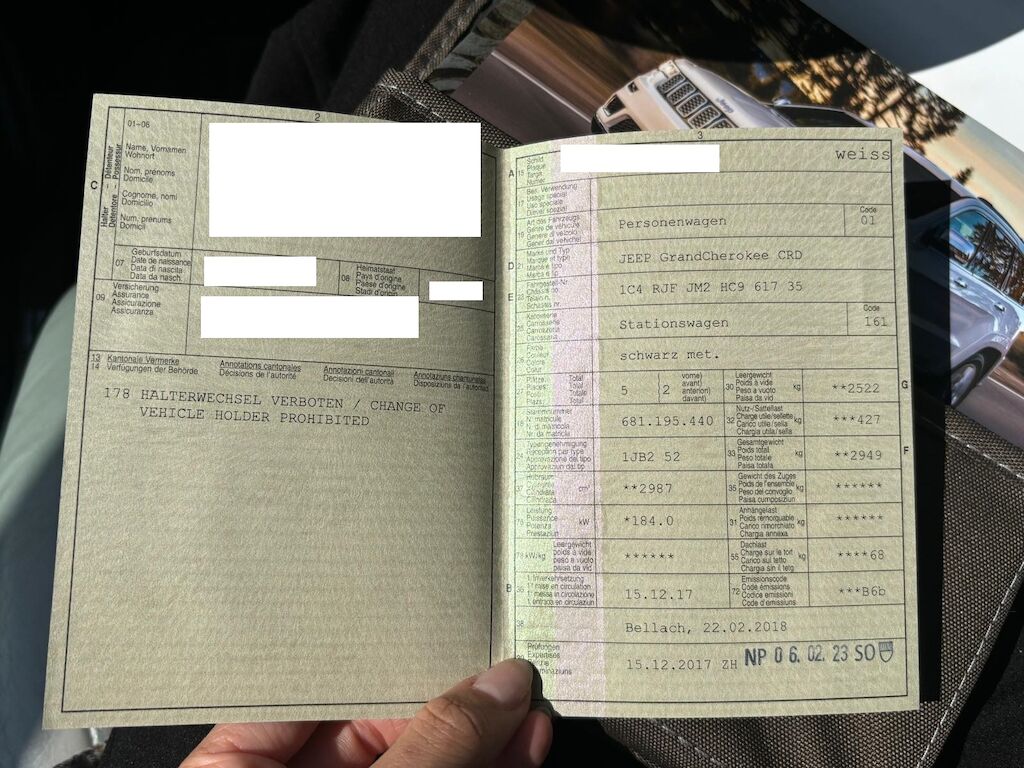 2
01-06
Name, Vornamen
Wohnort
Nom, prénoms
Domicile
Cognome, nomi
Domicilio
Num, prenums
Domicil
C
Halter - Détenteur
Detentore - Possessur
07
Geburtsdatum
Date de naissance
Data di nascita
Data da nasch.
08
Heimatstaat
Pays d'origine
Paese d'origine
Stadi d'origin
09
Versicherung
Assurance
Assicurazione
Assicuranza
13
14
Kantonale Vermerke
Verfügungen der Behörde
Annotations cantonales
Décisions de l'autorité
Annotazioni cantonali
Decisioni dell'autorità
Annotaziuns chantunalas
Disposiziun da l'autoritad
178 HALTERWECHSEL VERBOTEN / CHANGE OF
VEHICLE HOLDER PROHIBITED
3
A
15
Schild
Plaque
Targa
Numer
weiss
17
Bes. Verwendung
Usage spécial
Uso speciale
Diever spezial
19
Art des Fahrzeugs
Genre de véhicule
Genere di veicolo
Gener dal vehichel
Personenwagen
Code
01
D
21
Marke und Typ
Marque et type
Marca e tipo
JEEP GrandCherokee CRD
E
23
Fahrgestell-Nr.
1C4 RJF JM2 HC9 617 35
25
Karosserie
Carrosserie
Carrozzeria
Carossaria
Stationswagen
Code
161
26
Farbe
Couleur
Colore
Colur
schwarz met.
27
Plätze
Places
Posti
Plazs
Total
Total
Totale
Total
5
2
vorne)
avant)
anteriori)
davant)
30
Leergewicht
Poids à vide
Peso a vuoto
Paisa da vid
kg
**2522
G
18
Stammnummer
N. matricule
N. di matricola
Nr. da matricla
681.195.440
32
Nutz-/Sattellast
Charge utile/sellette
Carico utile/sella
Chargia utila/sella
kg
***427
24
Typengenehmigung
Réception par type
Approvazione del tipo
Approvaziun dal tip
1JB2 52
33
Gesamtgewicht
Poids total
Peso totale
Paisa totala
kg
**2949
F
37
Hubraum
Cylindrée
Cilindrata
Cilindrada
cm³
**2987
35
Gewicht des Zuges
Poids de l'ensemble
Peso del convoglio
Paisa cumposiziun
kg
******
76
Leistung
Puissance
Potenza
Prestaziun
kW
*184.0
31
Anhängelast
Poids remorquable
Carico rimorchiato
Chargia annexa
kg
******
78
kW/kg
Leergewicht
poids à vide
peso a vuoto
paisa da vid
******
55
Dachlast
Charge sur le toit
Carico sul tetto
Chargia sin il tetg
kg
****68
B
36
1. Inverkehrsetzung
1re mise en circulation
1a messa in circolazione
1. entrada en circulaziun
15.12.17
72
Emissionscode
Code émissions
Codice emissioni
Code d'emissiuns
***B6b
38
Bellach, 22.02.2018
39
Prüfungen
Expertises
15.12.2017 ZH NP 06. 02. 23 SO
Jeep